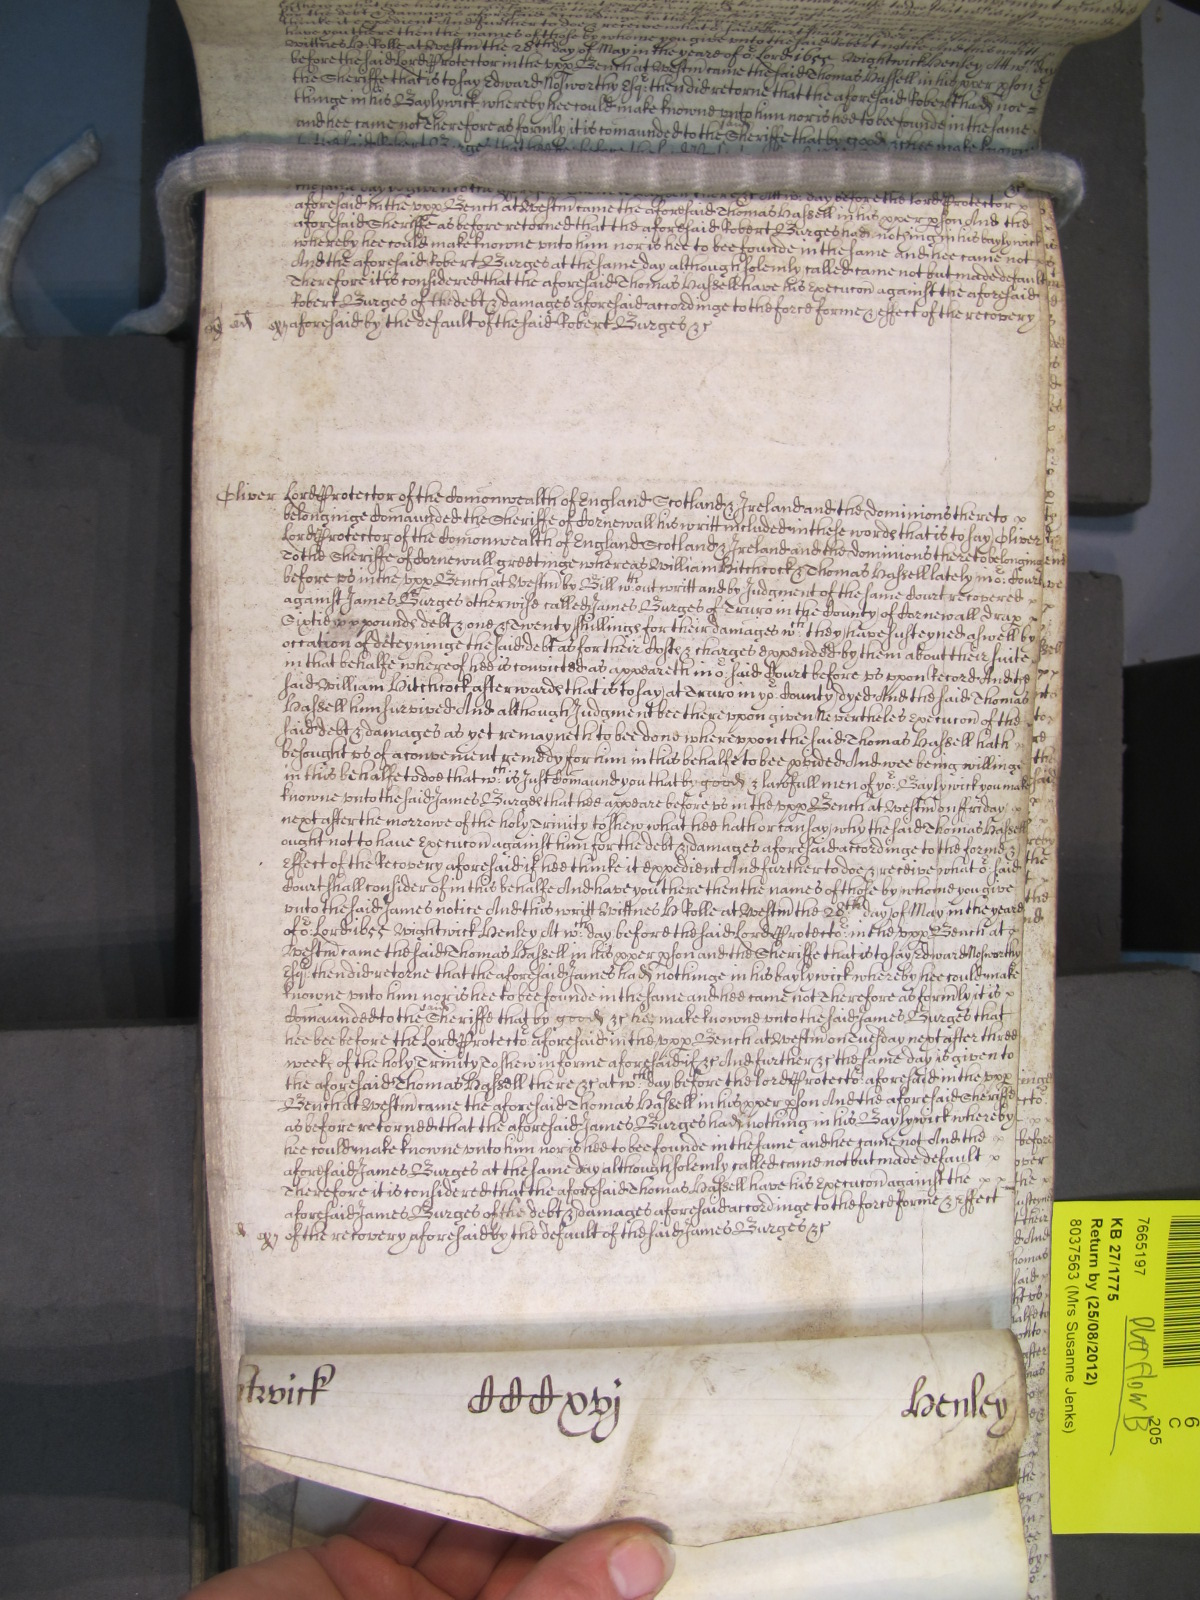 thinke it expedient And further to doe & receive what o said Court shall consider of in this behalfe And
have you there then the names of those by whome you give unto the said Robert notice And this writt
wittnes H Rolle at Westm the 28th day of May in the yeare of o Lord 1655 Wightwick Henley At wch day
before the said Lord Protector in the upp Bench at Westm came the said Thomas Hassell in his pper pson &
the Sheriffe that is to say Edward Nosworthy Esqr then did retorne that the aforesaid Robert hath noe =
thinge in his Baylywick whereby hee could make knowne unto him nor is hee to bee founde in the same
and hee came not Therefore as formly it is comaunded to the Sheriffe that by good &c hee make knowne
the same day is given to the
aforesaid in the upp Bench at Westm came the aforesaid Thomas Hassell in his pper pson And the
aforesaid Sheriffe as before retorned that the aforesaid Robert Burges had nothing in his baylywick
whereby hee could make knowne unto him nor is hee to bee founde in the same and hee came not
And the aforesaid Robert Burges at the same day although solemly called came not but made default
Therefore it is considered that the aforesaid Thomas Hassell have his Execucon against the aforesaid
Robert Burges of the debt & damages aforesaid accordinge to the force forme & effect of the recovery
aforesaid by the default of the said Robert Burges &c
Oliver Lord Protector of the Comonwealth of England Scotland & Ireland and the dominions thereto
belonginge Comaunded the Sheriffe of Cornewall his writt included in these words that is to say Oliver
Lord Protector of the Comonwealth of England Scotland & Ireland and the dominions thereto belonging
To the Sheriffe of Cornewall greetinge whereas William Hitchcock & Thomas Hassell lately in o Court
before us in the upp Bench at Westm by Bill wthout writt and by Judgment of the same Court recovered
against James Burges otherwise called James Burges of Truro in the County of Cornewall Drap
Sixtie pounds debt & one & Twenty shillings for their damages wch they have susteyned aswell by
occation of deteyninge the said debt as for their Costs & charges expended by them about their suite
in that behalfe whereof hee is convicted as appeareth in o said Court before us uppon Record And the
said William Hitchcock afterwards that is to say at Truro in yo County dyed And the said Thomas
Hassell him survived And although Judgment bee thereuppon given Nevertheles Execucon of the
said debt & damages as yet remayneth to bee done whereuppon the said Thomas Hassell hath
besought us of a convenient remedy for him in this behalfe to bee pvided And wee being willinge
in this behalfe to doe that wch is Just Comaund you that by good & lawfull men of yo Baylywick you make
knowne unto the said James Burges that hee appeare before us in the upp Bench at Westm on ffriday
next after the morrowe of the holy Trinity to shew what hee hath or can say why the said Thomas Hassell
ought not to have Execucon against him for the debt & damages aforesaid accordinge to the forme &
Effect of the Recovery aforesaid if hee thinke it expedient And further to doe & receive what o said
Court shall consider of in this behalfe And have you there then the names of those by whome you give
unto the said James notice And this writt wittnes H Rolle at Westm the 28th day of May in the yeare
of o Lord 1655 Wightwick Henley At wch day before the said Lord Protecto in the upp Bench at
Westm came the said Thomas Hassell in his pper pson and the Sheriffe that is to say Edward Nosworthy
Esqr then did retorne that the aforesaid James had nothinge in his baylywick whereby hee could make
knowne unto him nor is hee to bee founde in the same and hee came not Therefore as formly it is
Comaunded to the Sheriffe that by good &c hee make knowne unto the said James Burges that
hee bee before the Lord Protecto aforesaid in the upp Bench at Westm on Tuesday next after three
weeks of the holy Trinity To shew in forme aforesaid if &c And further &c the same day is given to
the aforesaid Thomas Hassell there &c at wch day before the Lord Protecto aforesaid in the upp
Bench at Westm came the aforesaid Thomas Hassell in his pper pson And the aforesaid Sheriffe
as before retorned that the aforesaid James Burges had nothing in his Baylywick whereby
hee could make knowne unto him nor is hee to bee founde in the same and hee came not And the
aforesaid James Burges at the same day although solemly called came not but made default
Therefore it is considered that the aforesaid Thomas Hassell have his Execucon against the
aforesaid James Burges of the debt & damages aforesaid accordinge to the force forme & Effect
of the recovery aforesaid by the default of the said James Burges &c
twick CCCxvj Henley
7665197
KB 27/1775
Return by (25/08/2012)
8037563 (Mrs Susanne Jenks)
Overflow B
205
6
C